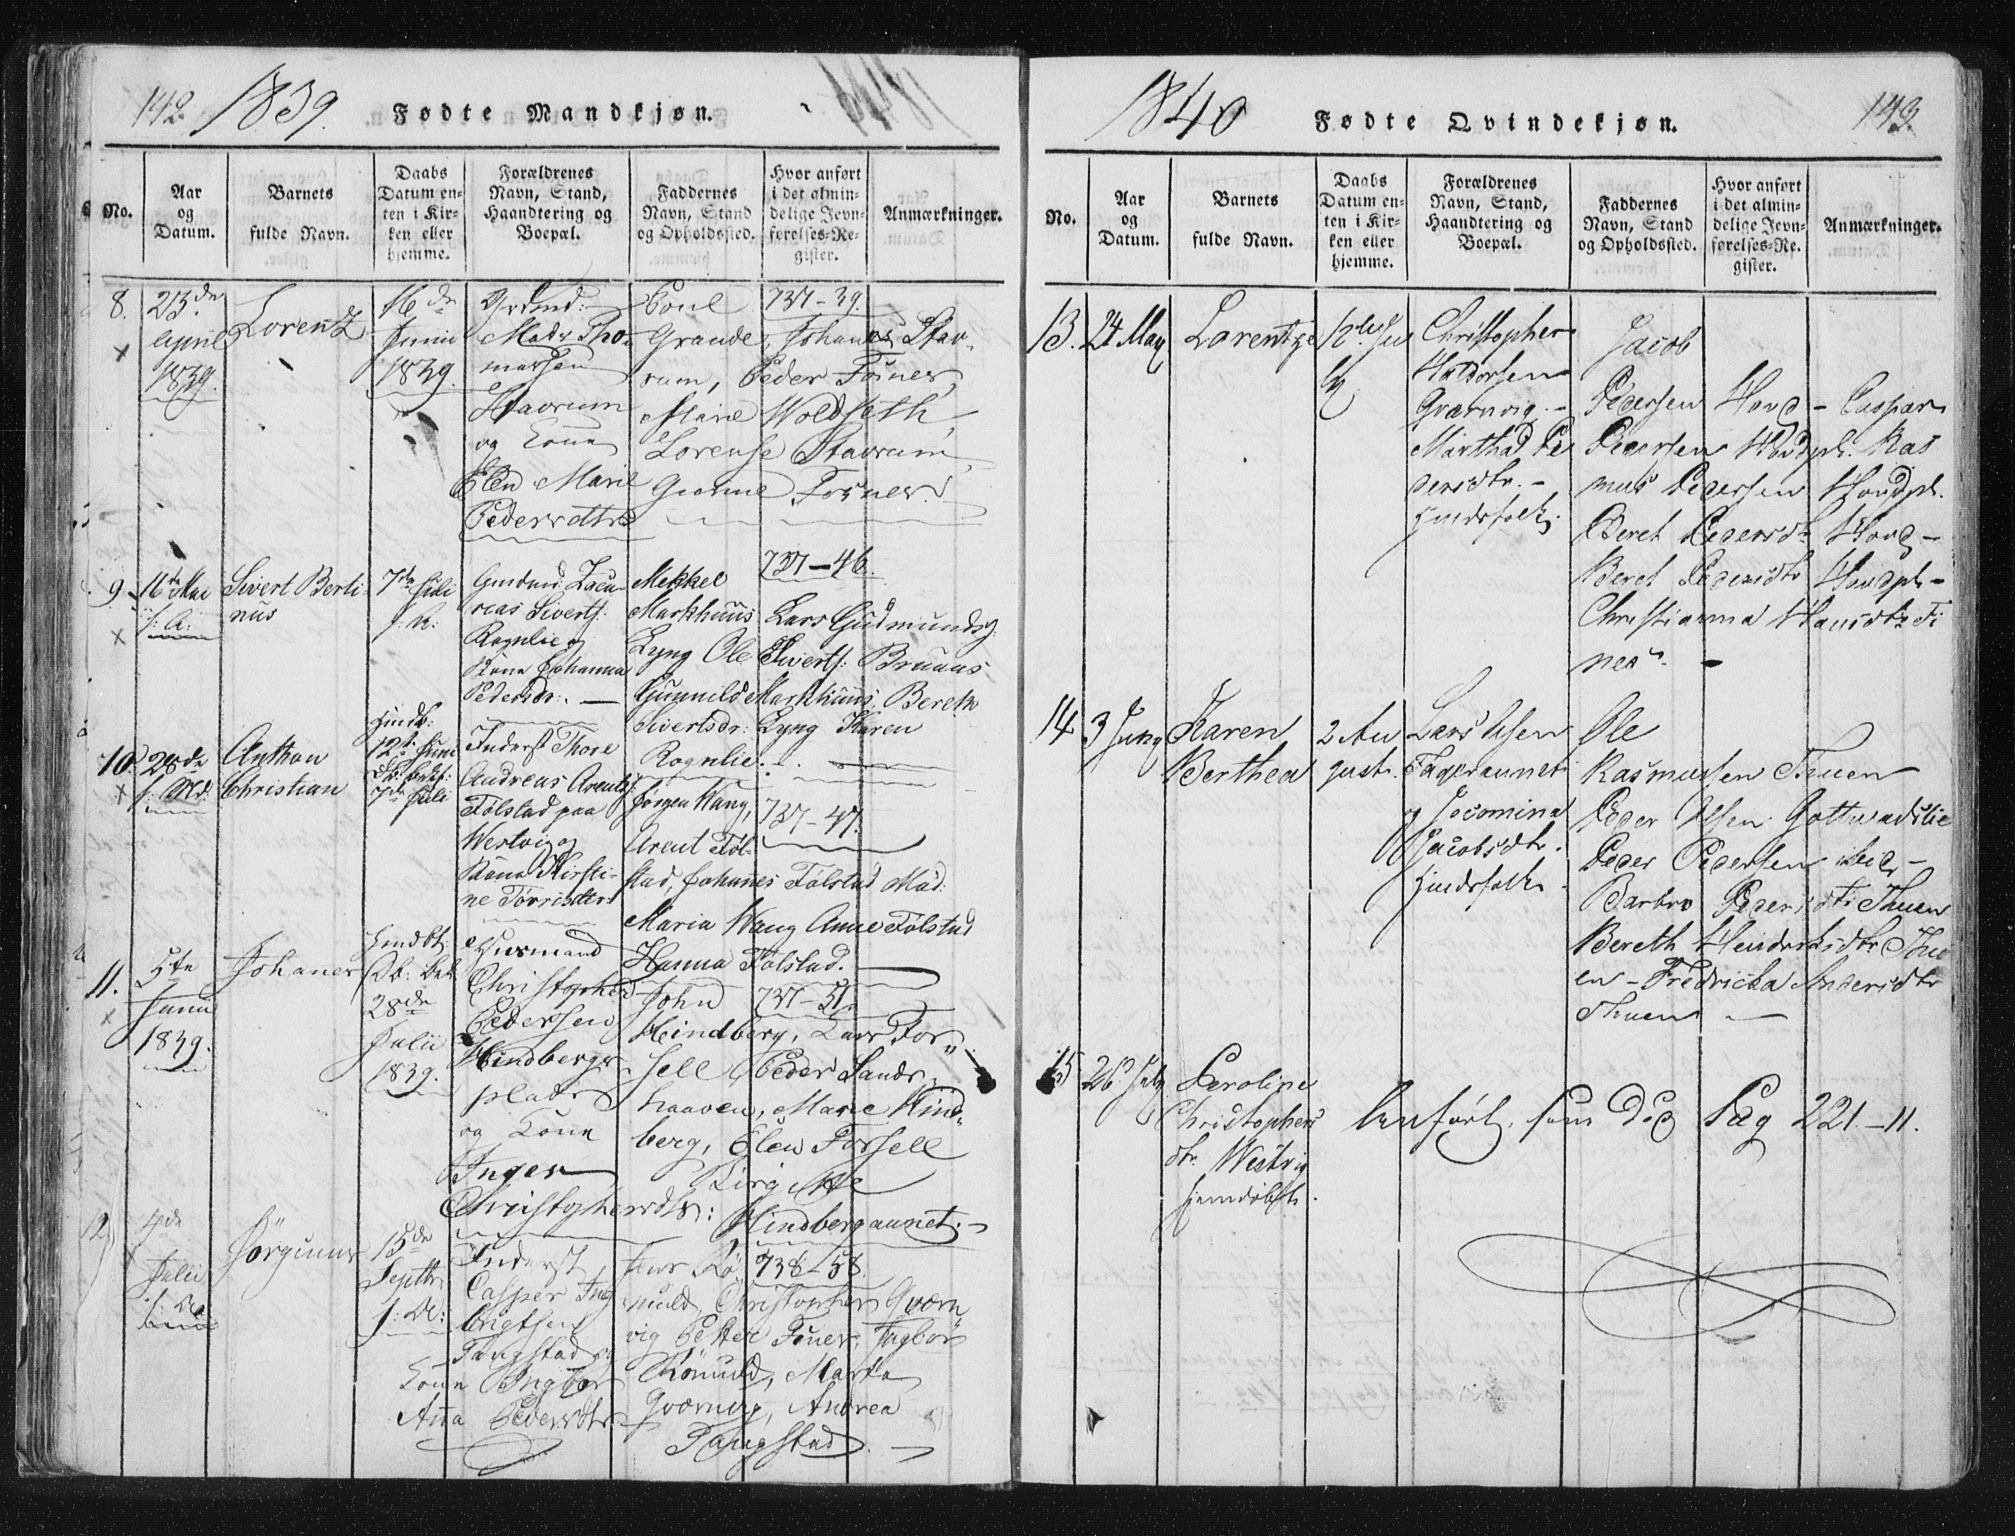 142 1839. Fødte Mandkjøn.
No.
Aar
og
Datum.
Barnets
fulde Navn.
Daabs
Datum en-
ten i Kir-
ken eller
hjemme.
Forældrenes
Navn, Stand,
Haandtering og
Boepæl.
Faddernes
Navn, Stand
og Opholdssted.
Hvor anført
i det almin-
delige Jevn-
førelses-Re-
gister.
Anmærkninger.
8.
23de
April
1839.
Lorentz
16de
Junii
1839.
Grdmd:
Mads Tho-
massen
Stavrum
og Kone
Elen Marie
Pedersdtr
Poul 737-39.
Grande, Johanes Stav-
rum, Peder Finer,
Marie Woldseth,
Lorense Stavrum,
Finer
9.
16de Mai
Sivert Berti-
nus
7de Juli
Gmdmd: Zaca-
rias Siverts:
Rognlie og
Kone Johanna
Pedersdr:
Mekkel 737-46.
Markhuus Lars Gudmunds:
Lyng Ole Siverts: Bruaas
Gunnild Markhuus, Bereth
Sivertsdr: Lyng Karen
Rognlie.
10.
28de
Anthon
Christian
12te Juni
7de Juli
Inderst Thore
Andreas Arents:
Følstad paa
Westvig og
Kone Kirsti-
ne Torrisdtr
Jørgen Wang, 737-47.
Arent Føl-
stad, Johannes Følstad Mad:
Maria Wang Anne Følstad
Hanna Følstad.
11.
5te
Junii
1839.
Johanes
28de
Julii
1839.
Huusmand
Christopher
Pedersen
Hindbergs-
plads
og Kone
Inger
Christophersdtr:
John 737-51.
Hindberg, Lars For-
sell, Peder Sands-
haaven, Marie Hind-
berg, Elen Forsell
Birgitte
Hindbergaunet.
12
4de
Julii
Jørginus
15de
Septbr
Inderst
Casper Ing-
brigtsen
Tangstad og
Kone Ingbor
Anna Pedersdtr
Jens Rö- 738-58.
muld, Christopher Qværn-
vig Petter Finer, Ingbor
Römuld, Marta
Qværnvig, Andrea
Tangstad.
1840 Fødte Qvindekjøn. 143.
No.
Aar
og
Datum.
Barnets
fulde Navn.
Daabs
Datum en-
ten i Kir-
ken eller
hjemme.
Forældrenes
Navn, Stand,
Haandtering og
Boepæl.
Faddernes
Navn, Stand
og Opholdssted.
Hvor anført
i det almin-
delige Jevn-
førelses-Re-
gister.
Anmærkninger.
13.
24 May
Lorentze
12te Ju
ly
Christopher
Haldorsen
Qværnvig.
Martha Pe
dersdtr. -
Huusfolk.
Jacob
Pedersen Hovd - Caspar
Pedersen Hovdpl. Ras
mus Pedersen Hovdpl.
Beret Pedersdr Hovd -
Beret Pedersdtr Hovdpl -
Christianna Hansdtr Fi
ner. -
14
3 Juny
Karen
Berthea
2 Au
gustr.
Lars Olsen
Fageraunet
og Jocomina
Jacobsdtr.
Huusfolk
Ole
Rasmussen Thuen
Peder Olsen Gottvasslie
Peder Pedersen ibid -
Barbro Pedersdtr Thuen
Bereth Hendriksdtr Thu
en - Fredricka Andersdtr
Thuen -
15
26 July
Peroline
Christophers
dtr. Westvig
hjemdøbt.
Anført som død Pag 221-11.